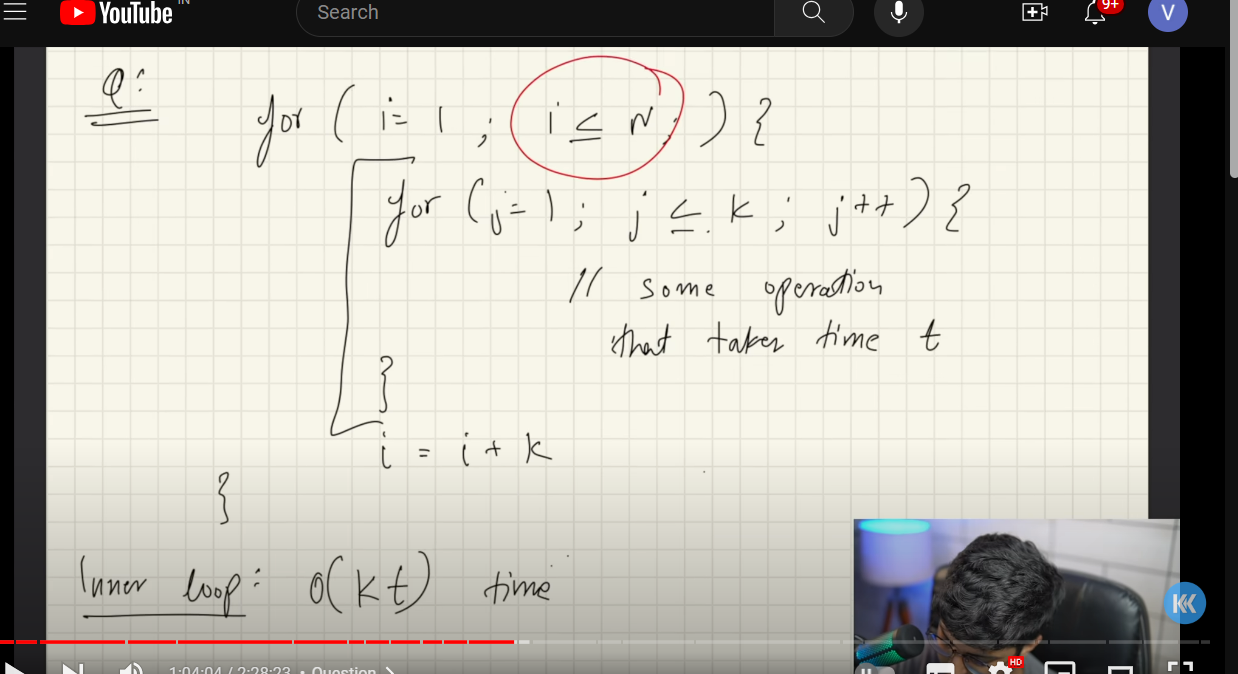 YouTube IN
Search
9+
V
Q:
for ( i= 1 ; i ≤ N; ) {
for (j= 1; j ≤ k ; j++) {
// some operation
that takes time t
}
i = i + k
}
Inner loop: O(kt) time
KK
1:04:04 / 2:28:23 • Question >
HD